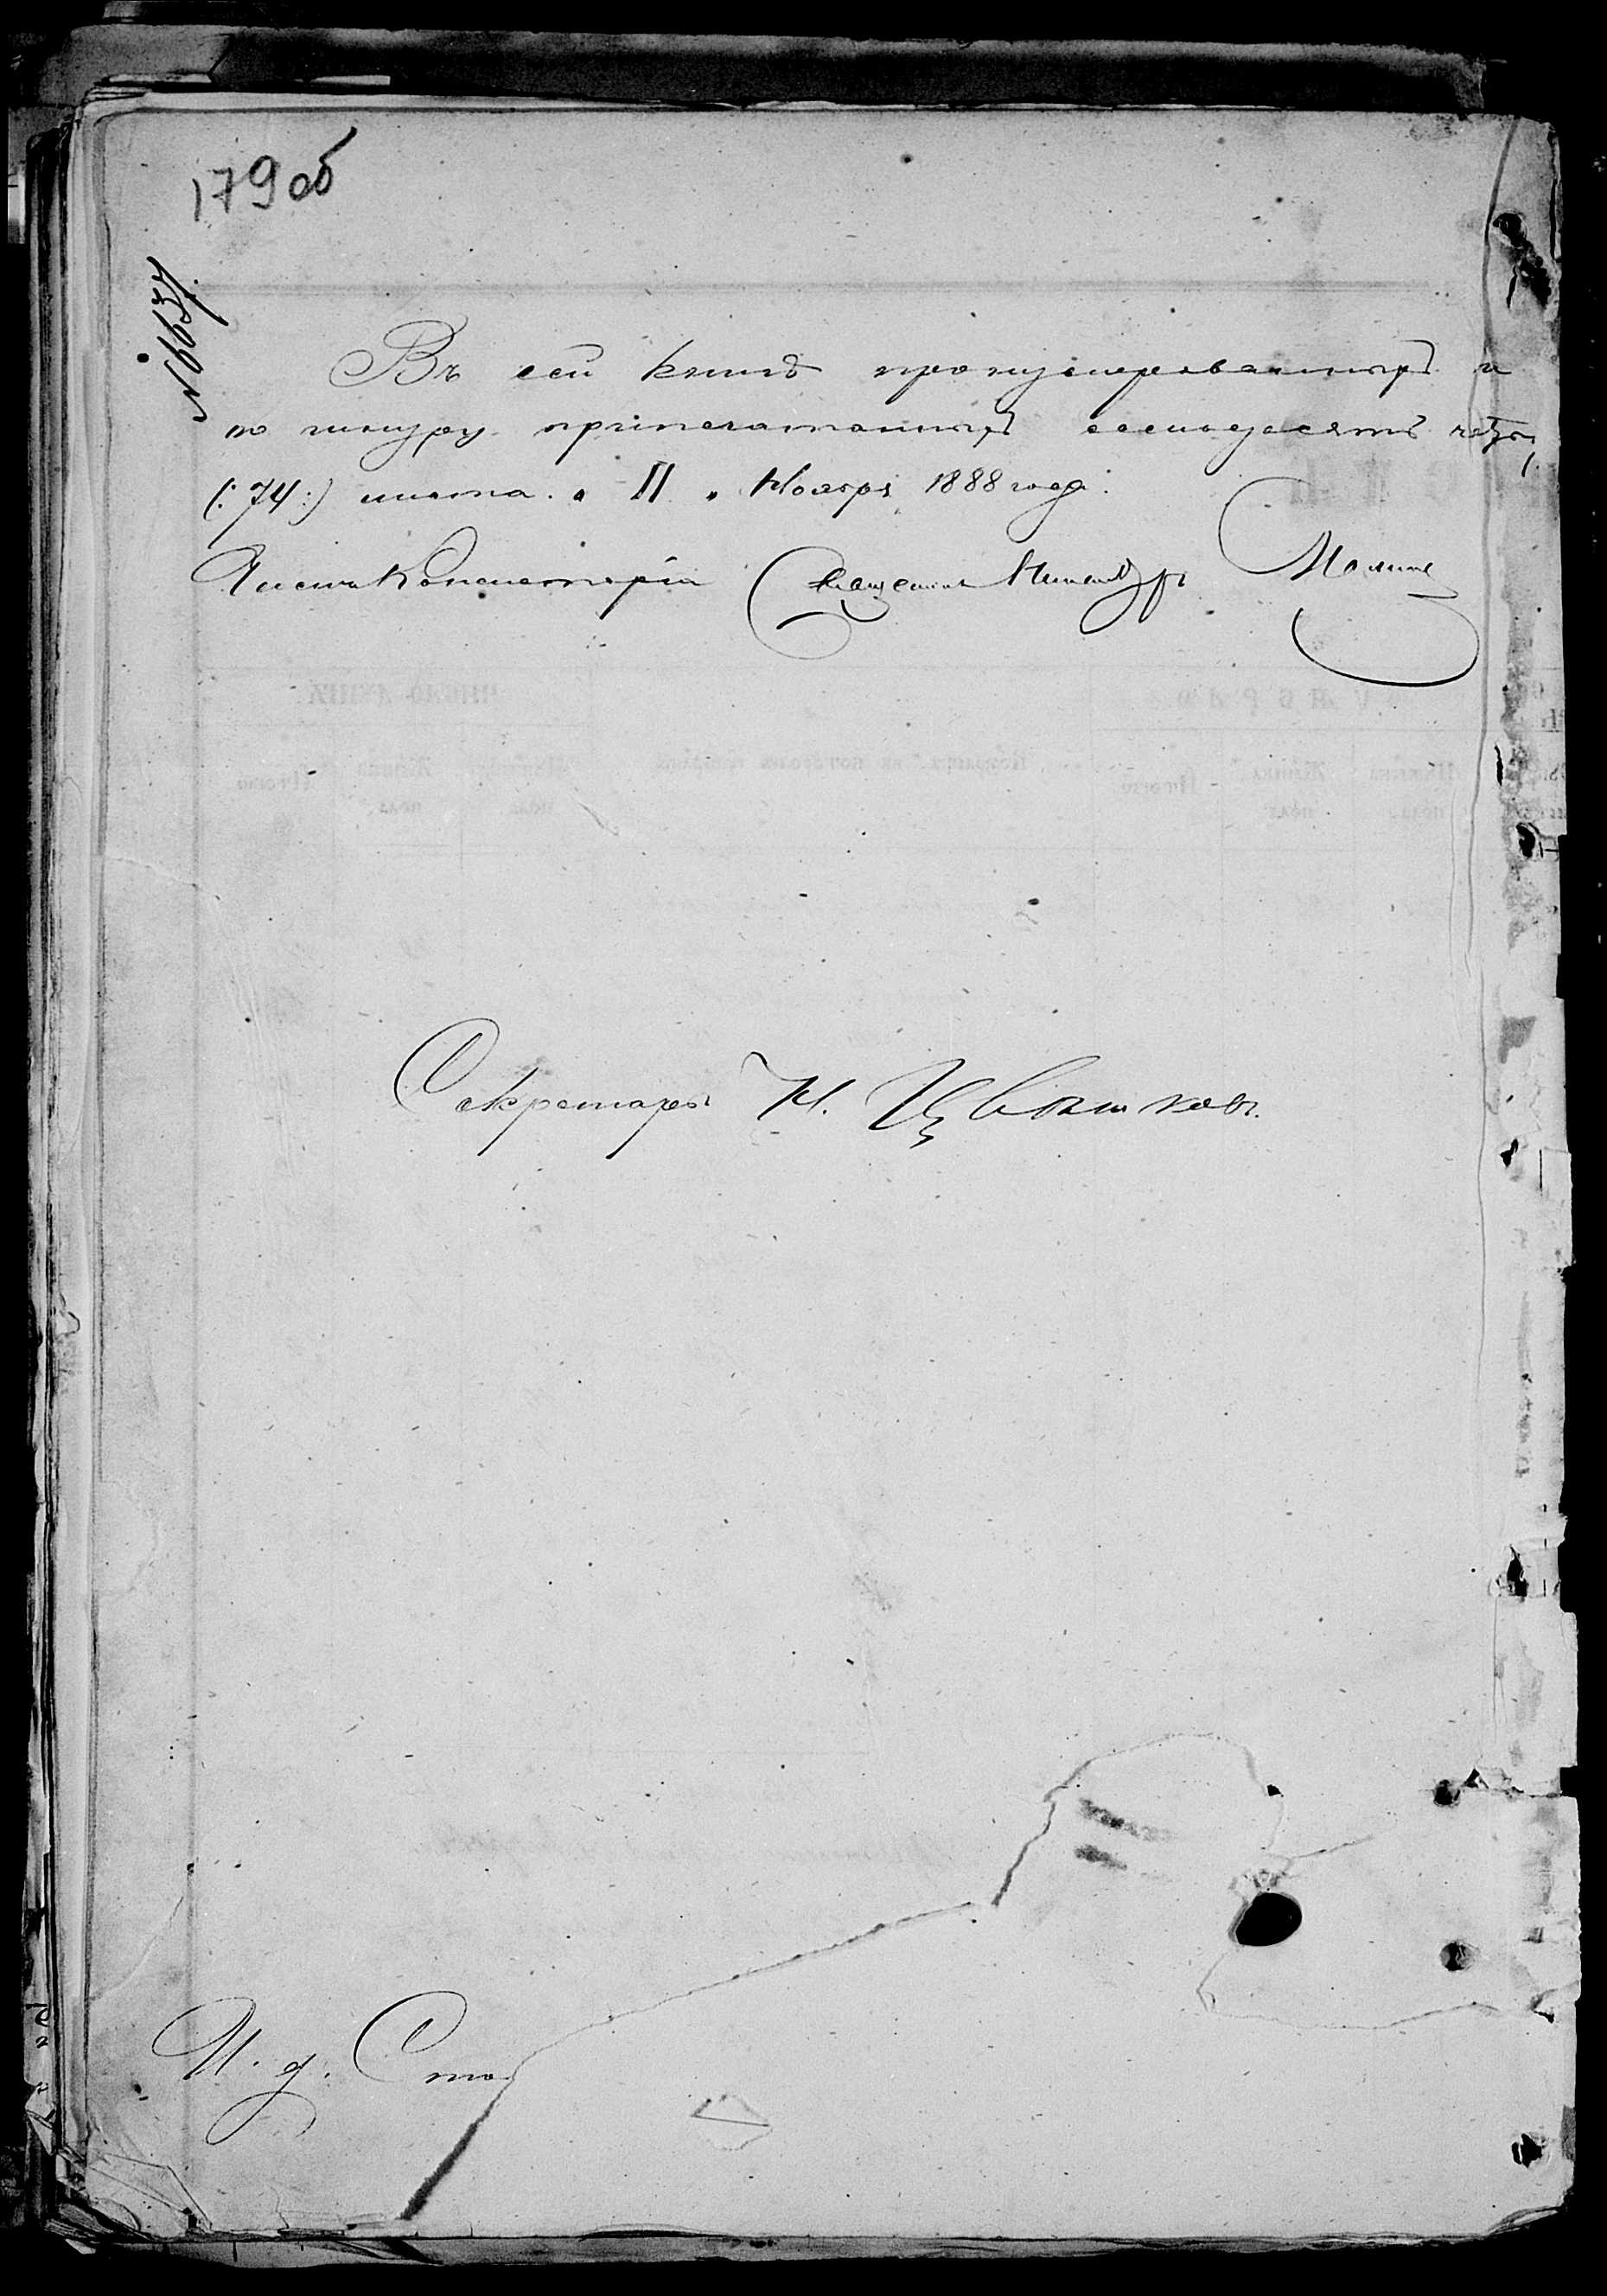 179 об
№ 6637
Въ сей книгѣ пронумерованныхъ и
по шнуру припечатанныхъ семьдесятъ четыре
(: 74 :) листа. „ 11 „ Ноября 1888 года.
Членъ Консисторіи Священникъ Малинъ
Секретарь Н. Цвѣтковъ.
И. д. Сто